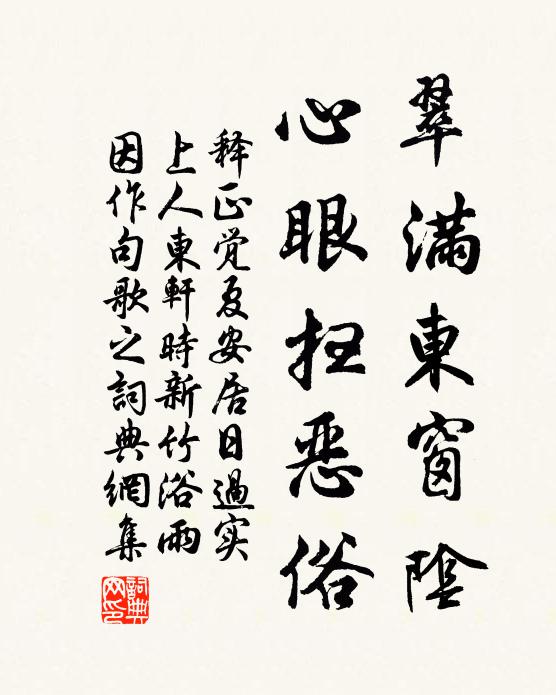 翠滿東窗陰
心眼扫恶俗
释正觉夏安居日過实
上人東軒時新竹浴雨
因作句歌之詞典網集
詞典网印